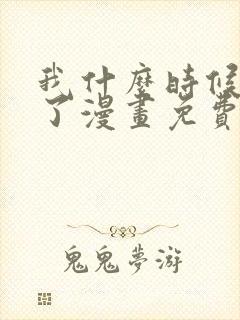 我什麼時候
了漫畫免費
鬼鬼夢游